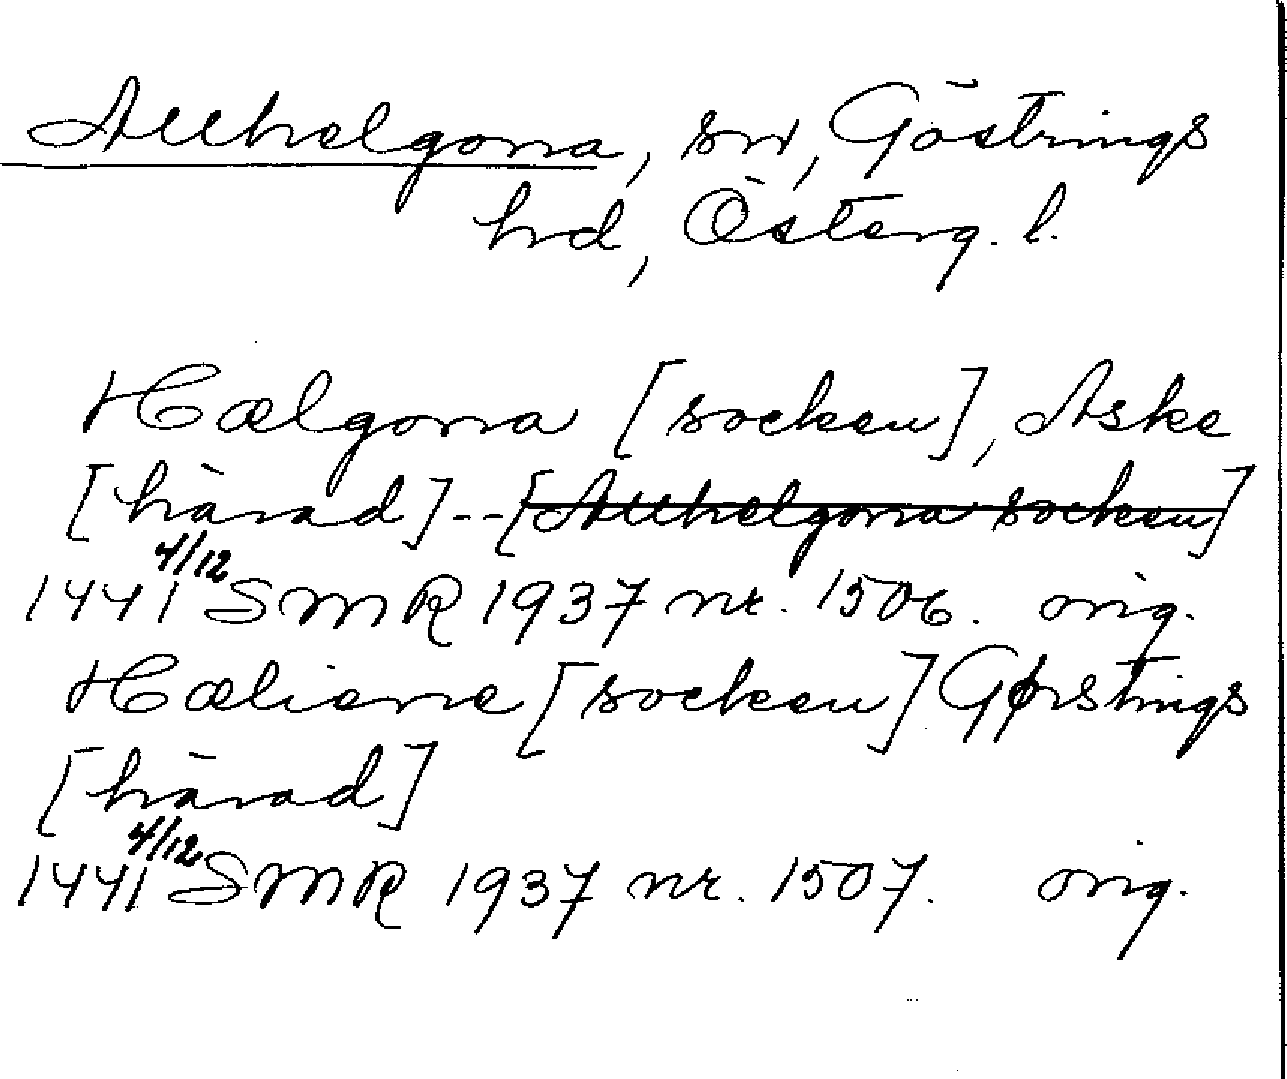 Allhelgona, sn, Göstrings
hd, Österg. l.
Hælgona [socken], Aske
[härad]--[Allhelgona socken]
1441 4/12 SMR 1937 nr. 1506. orig.
Hæliene [socken] Gørstings
[härad]
1441 4/12 SMR 1937 nr. 1507. orig.